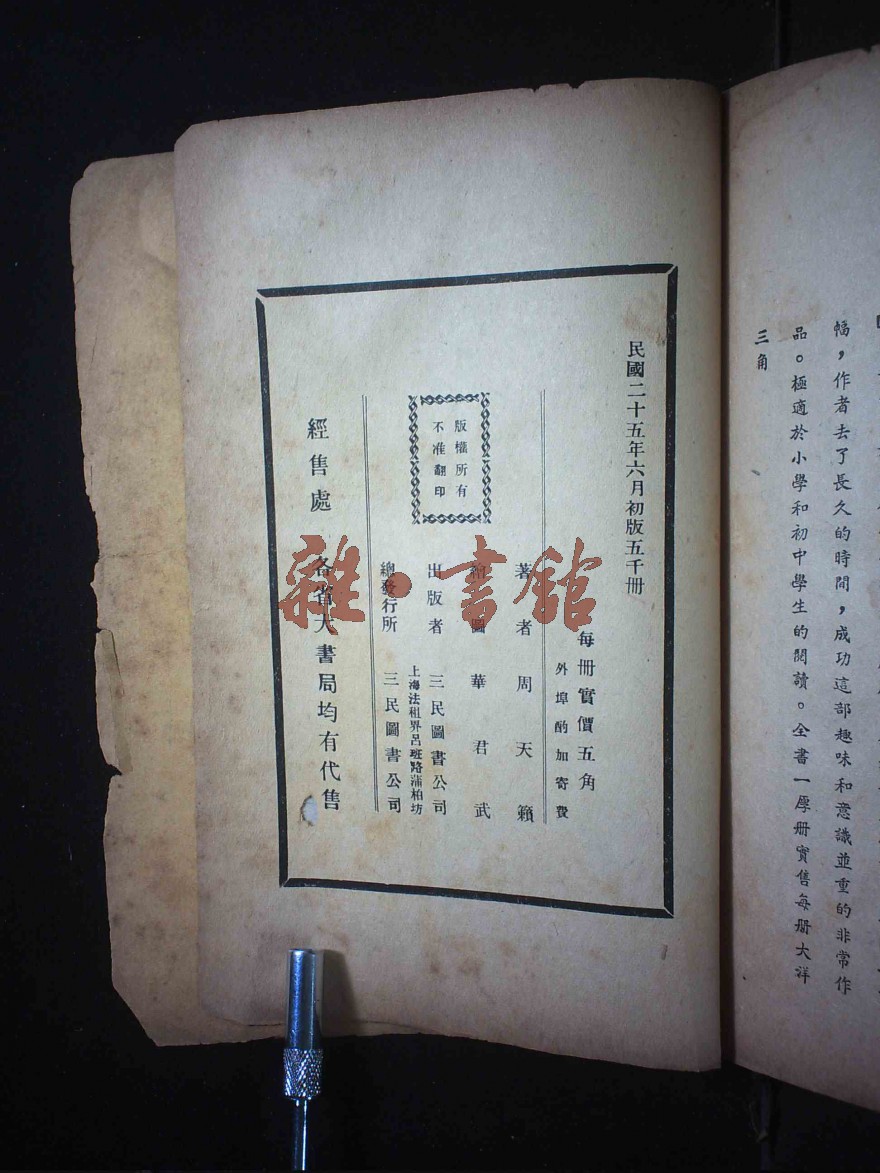 幅，作者去了長久的時間，成功這部趣味和意識並重的非常作
品。極適於小學和初中學生的閱讀。全書一厚册實售每册大洋
三角
民國二十五年六月初版五千册
每册實價五角
外埠酌加寄費
著者周天籟
繪圖華君武
版權所有
不准翻印
出版者三民圖書公司
上海法租界呂班路蒲柏坊
總發行所三民圖書公司
經售處各省大書局均有代售
雜·書館